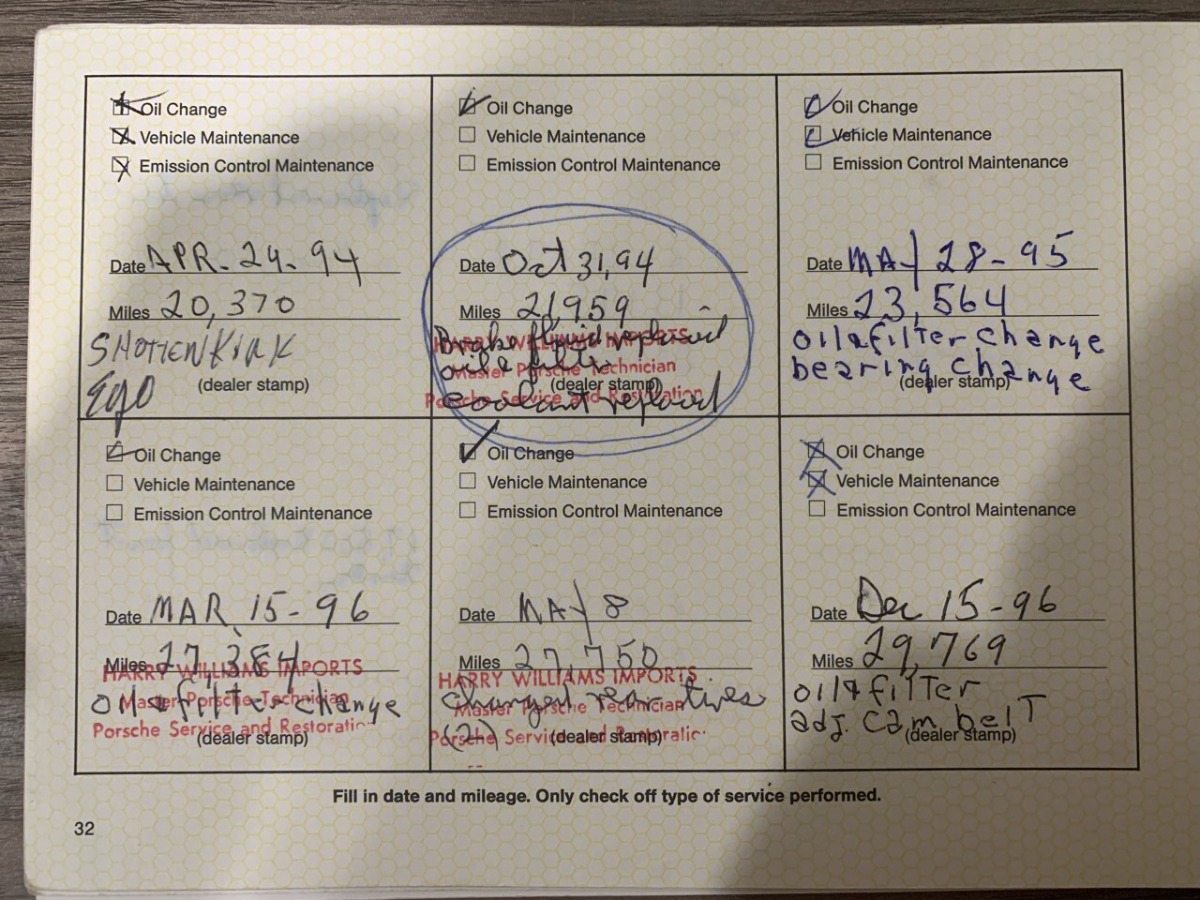 Oil Change
Vehicle Maintenance
Emission Control Maintenance
Date APR-24-94
Miles 20,370
SHOTTENKIRK
(dealer stamp)
Oil Change
Vehicle Maintenance
Emission Control Maintenance
Date Oct 31,94
Miles 21,959
HARRY WILLIAMS IMPORTS
Brake fluid replaced
Master Porsche Technician
(dealer stamp)
Porsche Service and Restoration
coolant replaced
Oil Change
Vehicle Maintenance
Emission Control Maintenance
Date MAY 28-95
Miles 23,564
oil & filter change
bearing change
(dealer stamp)
Oil Change
Vehicle Maintenance
Emission Control Maintenance
Date MAR 15-96
Miles 27,384
HARRY WILLIAMS IMPORTS
Master Porsche Technician
oil & filter change
Porsche Service and Restoration
(dealer stamp)
Oil Change
Vehicle Maintenance
Emission Control Maintenance
Date MAY 8
Miles 27,750
HARRY WILLIAMS IMPORTS
changed rear tires
Master Porsche Technician
(2)
Porsche Service and Restoratio
(dealer stamp)
Oil Change
Vehicle Maintenance
Emission Control Maintenance
Date Dec 15-96
Miles 29,769
oil & filter
adj. cam belt
(dealer stamp)
Fill in date and mileage. Only check off type of service performed.
32